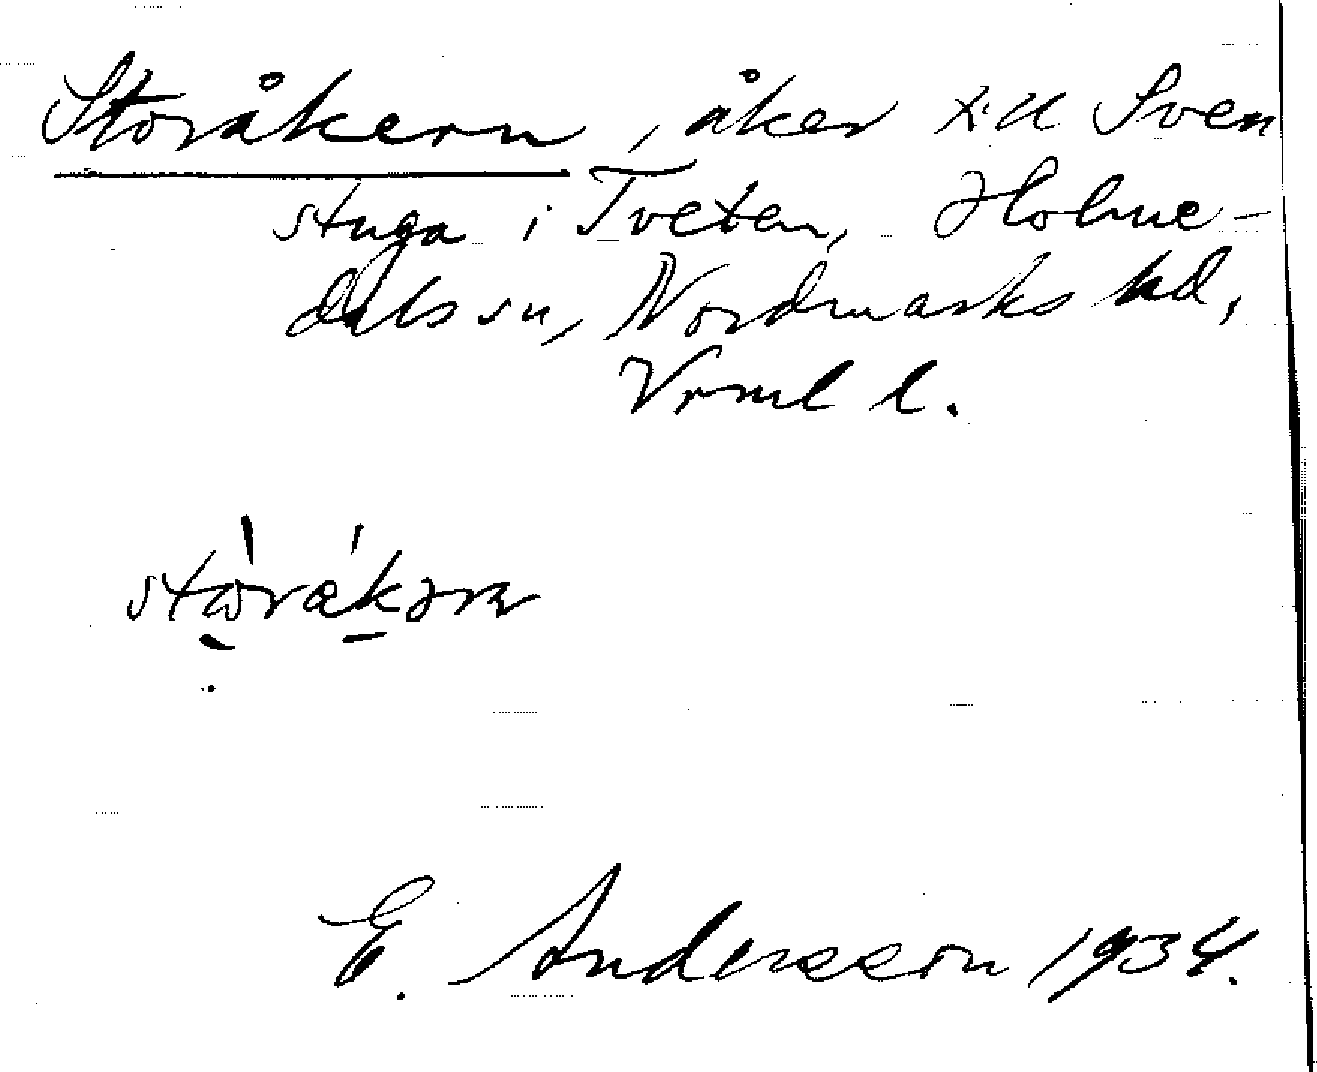 Storåkern, åker till Sven
stuga i Tveten, Holme-
dals sn, Nordmarks hd,
Vrml l.
E. Andersson 1934.